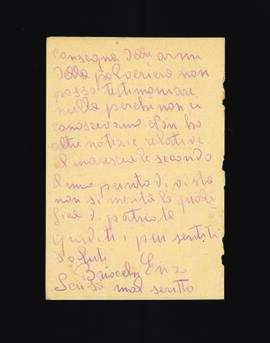 consegna delle armi
della polveriera non
posso testimoniare
nulla perché non ci
conoscevamo e non ho
altre notizie relative
al maresciallo secondo
il mio punto di vista
non si merita la qualifica
di patriota
Graditi i più sentiti
saluti
Enzo
Scusa mal scritto